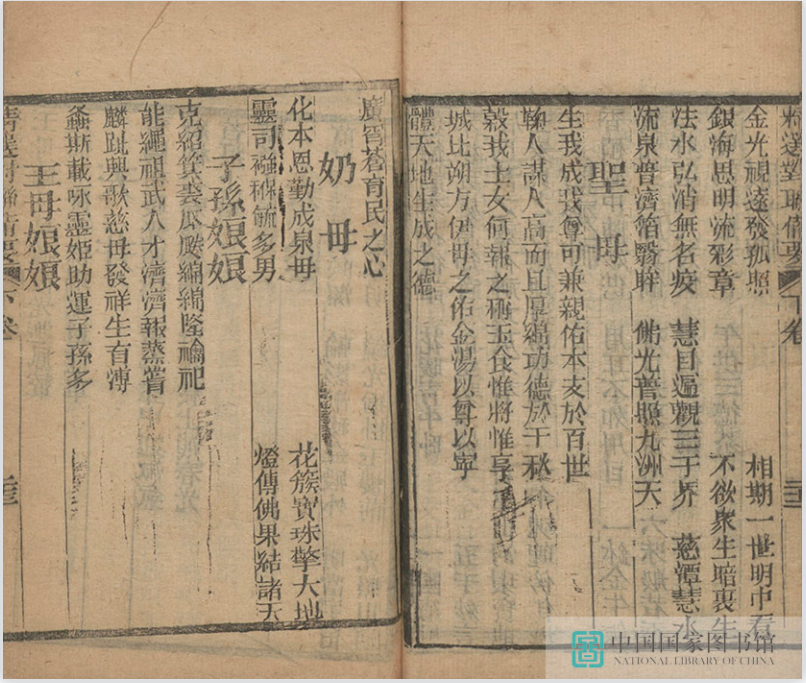 精選對聯備要 下卷
金光視遠發孤照 相期一世明中看
銀海思明流彩章 不欲衆生暗裏生
法水弘消無名疫 慧目遍觀三千界 慈潭慧水
流泉普濟箔翳眸 佛光普照九洲天
聖母
生我成我尊可兼親佑本支於百世
鞠人謀人高而且厚功德於千秋
穀我士女何報之極玉食惟將惟享
城比朔方伊母之佑金湯以尊以寧
體天地生成之德
廣穹蒼育民之心
奶毋
化本恩勤成泉毋 花簇寶珠擎大地
靈司襁褓毓多男 燈傳佛果結諸天
子孫娘娘
克紹箕裘瓜瓞綿綿隆禴祀
能繩祖武人才濟濟報蒸嘗
麟趾興歌慈毋發祥生有溥
螽斯載咏靈姬助運子孫多
王母娘娘
精選對聯備要 下卷
中国国家图书馆
NATIONAL LIBRARY OF CHINA